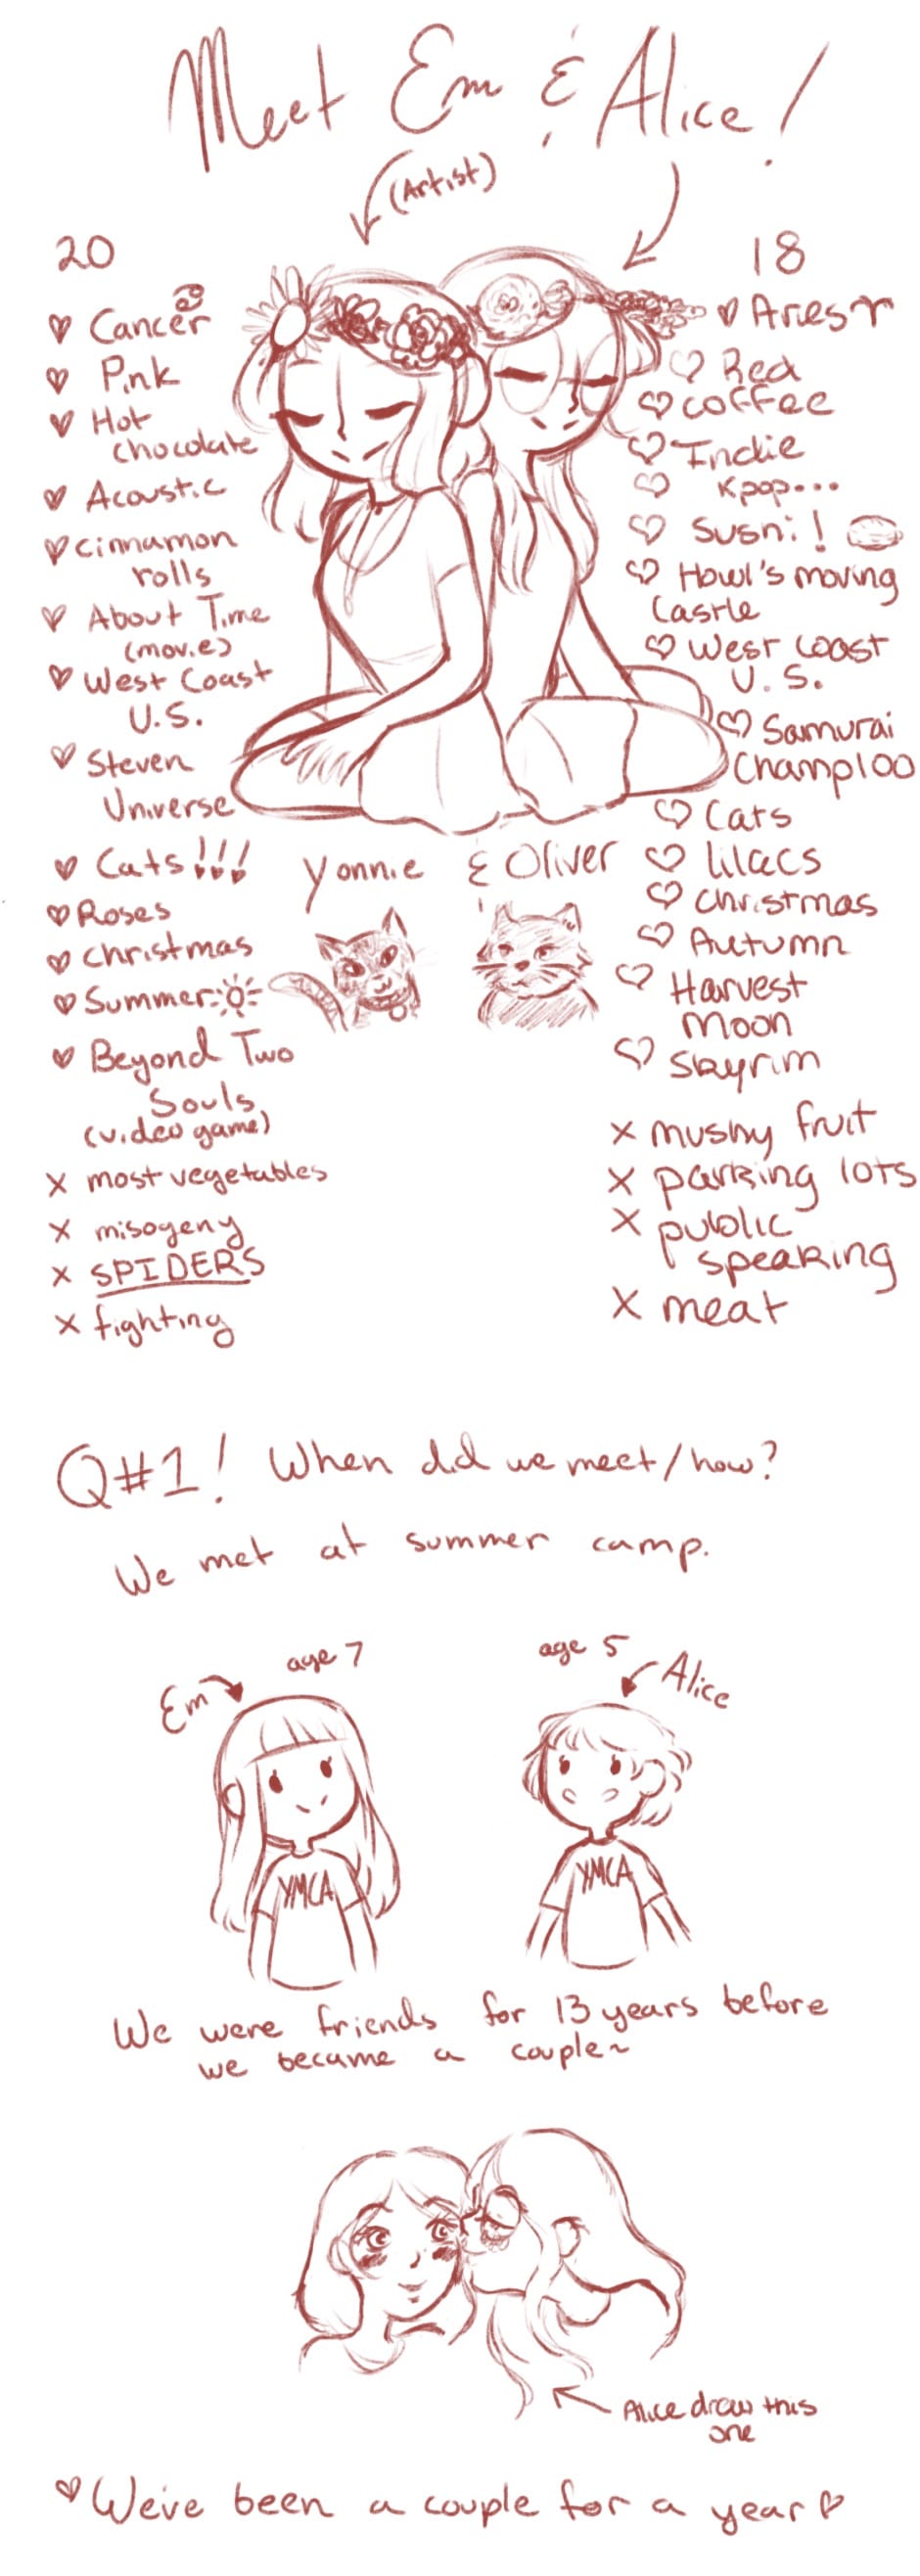 Meet Em & Alice!
(Artist)
20
Cancer ♋
Pink
Hot
chocolate
Acoustic
cinnamon
rolls
About Time
(movie)
West Coast
U.S.
Steven
Universe
Cats!!!
Roses
christmas
Summer
Beyond Two
Souls
(video game)
x most vegetables
x misogeny
x SPIDERS
x fighting
18
Aries ♈
Red
coffee
Indie
Kpop...
Sushi!
Howl's moving
Castle
West Coast
U.S.
Samurai
Champloo
Cats
lilacs
christmas
Autumn
Harvest
Moon
Skyrim
x mushy fruit
x parking lots
x public
speaking
x meat
Yonnie & Oliver
Q#1! When did we meet/how?
We met at summer camp.
Em age 7
age 5 Alice
YMCA
YMCA
We were friends for 13 years before
we became a couple~
Alice drew this
one
♥ We've been a couple for a year ♥